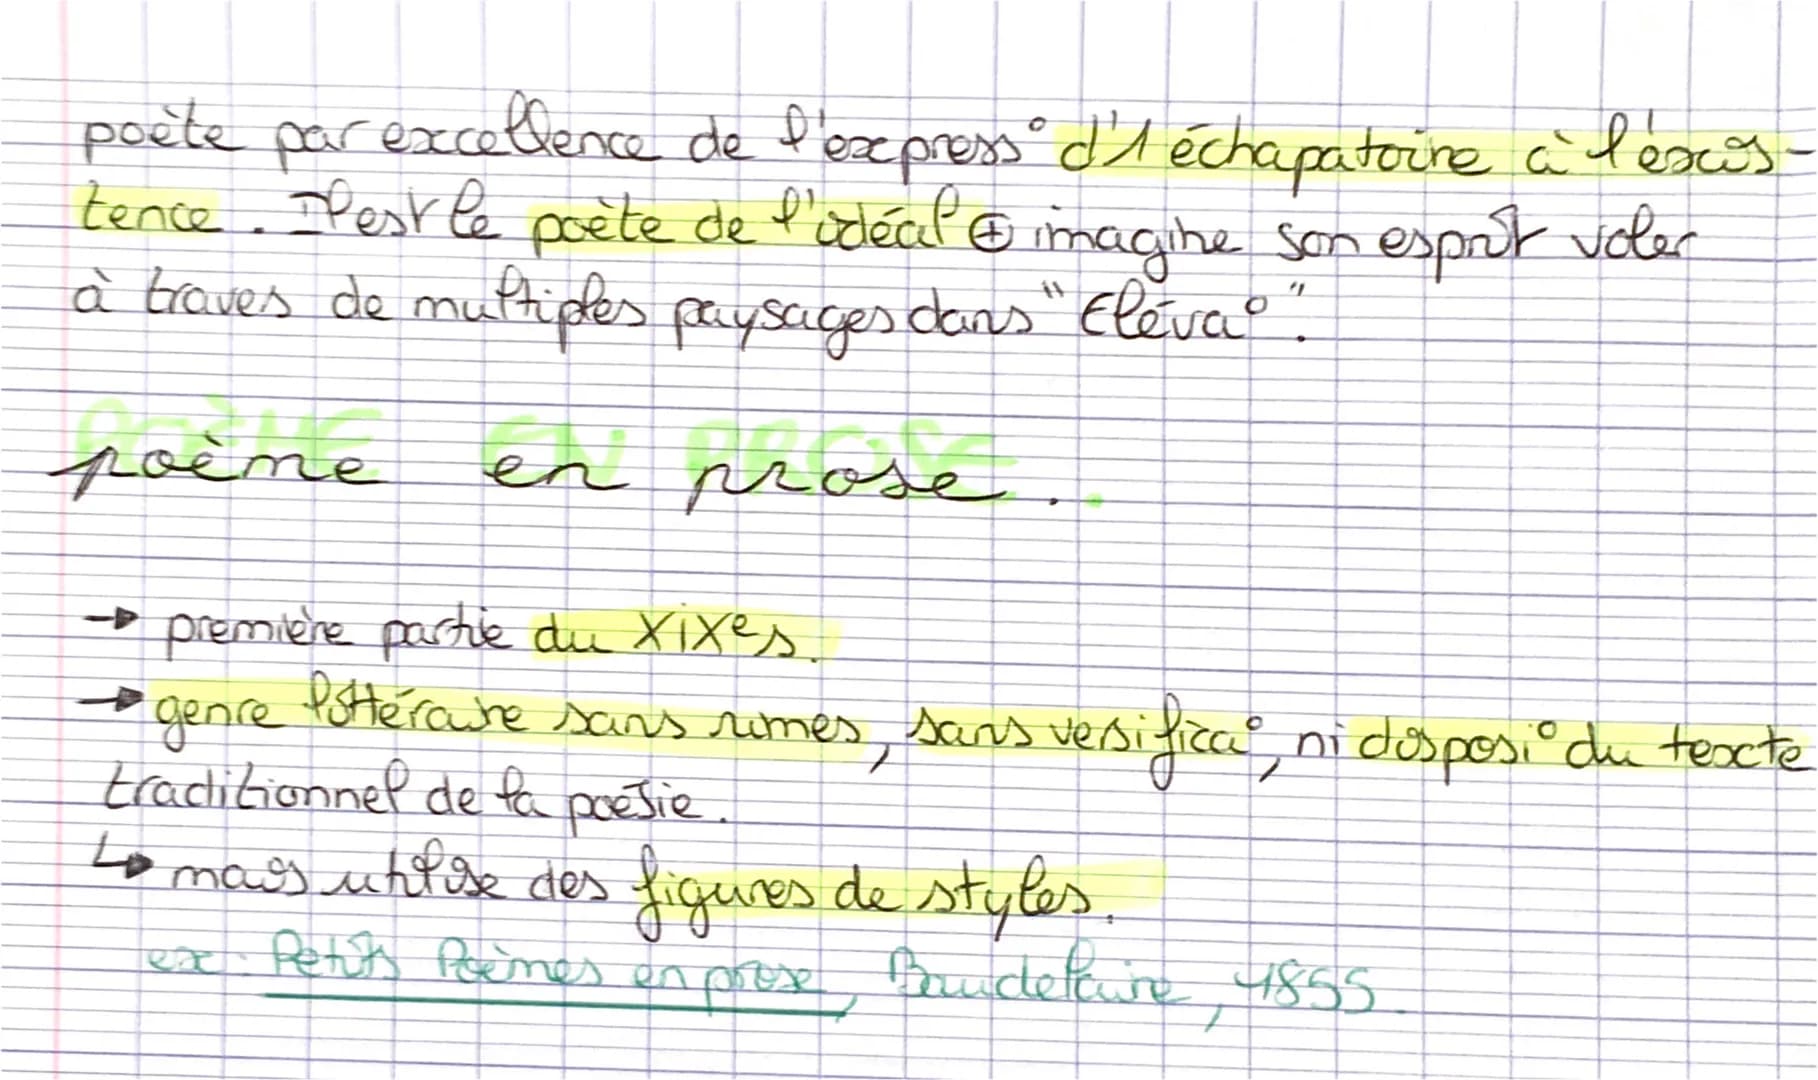 poète par excellence de l'express° d'1 échapatoire à l'éxis-
tence. Il est le poète de l'idéal ⊕ imagine son esprit voler
à travers de multiples paysages dans "Eléva°".
POÈME EN PROSE.
poème en prose.
→ première partie du XIXe s.
→ genre littéraire sans rimes, sans versifica°, ni disposi° du texte
traditionnel de la poésie.
↳ mais utilise des figures de styles.
ex : Petits Poèmes en prose, Baudelaire, 1855.